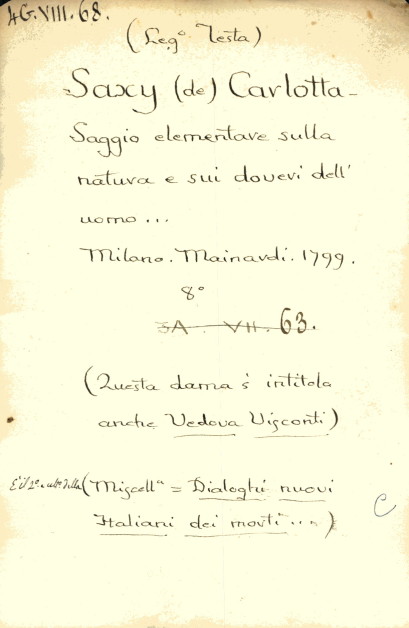 4G.VIII.68.
(Leg.º Testa)
Saxy (de) Carlotta-
Saggio elementare sulla
natura e sui doveri dell'
uomo...
Milano. Mainardi. 1799.
8º
3A. VII. 63.
(Questa dama s'intitola
anche Vedova Visconti)
È il 2º della (Miscell.ª = Dialoghi nuovi
Italiani dei morti...)
C